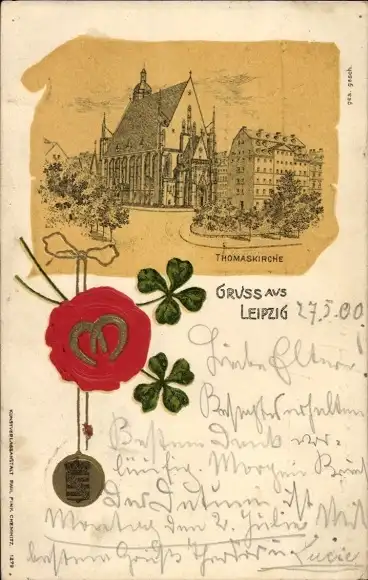 ges. gesch.
THOMASKIRCHE
GRUSS AUS
LEIPZIG
27.5.00
Liebe Eltern!
erhalten
Besten Dank vor-
läufig. Morgen Brief
Das Datum ist
Montag den 2. Julie Mit
besten Grüße Theodor u Lucie
KUNSTVERLAGSANSTALT PAUL FINK, CHEMNITZ. 1879